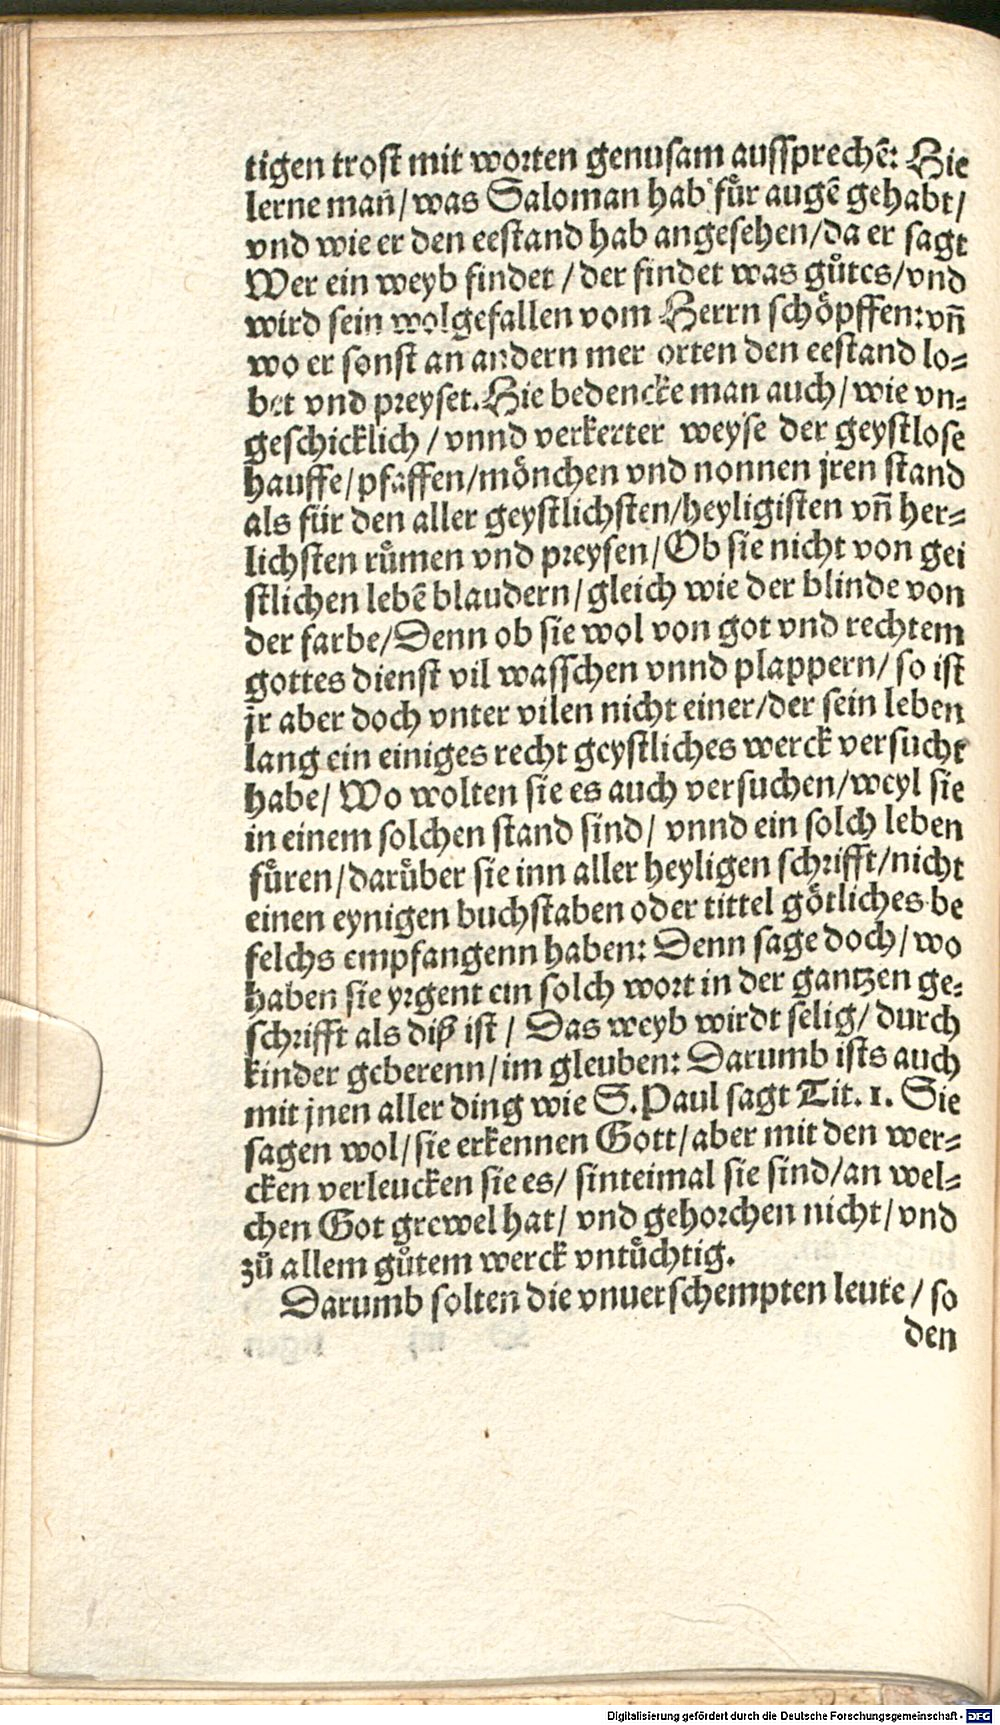 tigen trost mit worten genusam aussprechē: Hie
lerne man̄/ was Saloman hab fuͤr augē gehabt/
vnd wie er den eestand hab angesehen/da er sagt
Wer ein weyb findet / der findet was guͦtes/vnd
wird sein wolgefallen vom Herrn schöpffen:vn̄
wo er sonst an andern mer orten den eestand lo⸗
bet vnd preyset. Hie bedencke man auch/ wie vn⸗
geschicklich / vnnd verkerter weyse der geystlose
hauffe/ pfaffen/mönchen vnd nonnen jren stand
als für den aller geystlichsten/heyligisten vn̄ her⸗
lichsten ruͦmen vnd preysen/ Ob sie nicht von gei
stlichen lebē blaudern/ gleich wie der blinde von
der farbe/ Denn ob sie wol von got vnd rechtem
gottes dienst vil wasschen vnnd plappern/ so ist
jr aber doch vnter vilen nicht einer/der sein leben
lang ein einiges recht geystliches werck versucht
habe/ Wo wolten sie es auch versuchen/weyl sie
in einem solchen stand sind/ vnnd ein solch leben
fuͤren/darüber sie inn aller heyligen schrifft/nicht
einen eynigen buchstaben oder tittel götliches be
felchs empfangenn haben: Denn sage doch/ wo
haben sie yrgent ein solch wort in der gantzen ge⸗
schrifft als diß ist / Das weyb wirdt selig/ durch
kinder geberenn/im gleuben: Darumb ists auch
mit jnen aller ding wie S. Paul sagt Tit. 1. Sie
sagen wol/ sie erkennen Gott/ aber mit den wer⸗
cken verleucken sie es/ sinteimal sie sind/an wel⸗
chen Got grewel hat/ vnd gehorchen nicht/ vnd
zuͦ allem guͦtem werck vntüchtig.
Darumb solten die vnuerschempten leute/ so
den
Digitalisierung gefördert durch die Deutsche Forschungsgemeinschaft - DFG